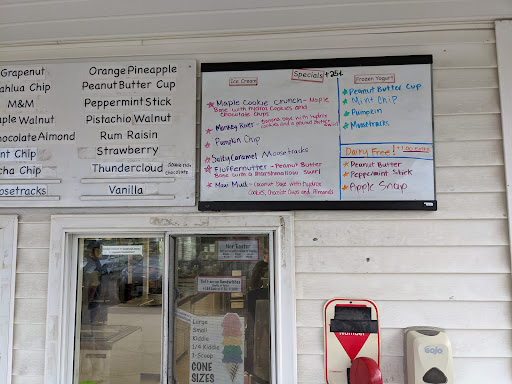 Grapenut
ahlua Chip
M&M
ple Walnut
hocolate Almond
int Chip
cha Chip
osetracks
Orange Pineapple
Peanut Butter Cup
Peppermint Stick
Pistachio Walnut
Rum Raisin
Strawberry
Thundercloud
Vanilla
Specials +25¢
Ice Cream
Maple Cookie Crunch - Maple
Base with Hydrox Cookies and
Chocolate Chips
Monkey River - Banana base with hydrox
cookies and a peanut butter
Pumpkin Chip
Salty Caramel Moosetracks
Fluffernutter - Peanut Butter
Base with a Marshmallow Swirl
Maui Mud - Coconut base with Hydrox
Cookies, Chocolate Chips and Almonds
Frozen Yogurt
Peanut Butter Cup
Mint Chip
Pumpkin
Moosetracks
Dairy Free
Peanut Butter
Peppermint Stick
Apple Snap
Large
Small
Kiddie
1/2 Kiddie
1-Scoop
CONE
SIZES
Number
GOJO